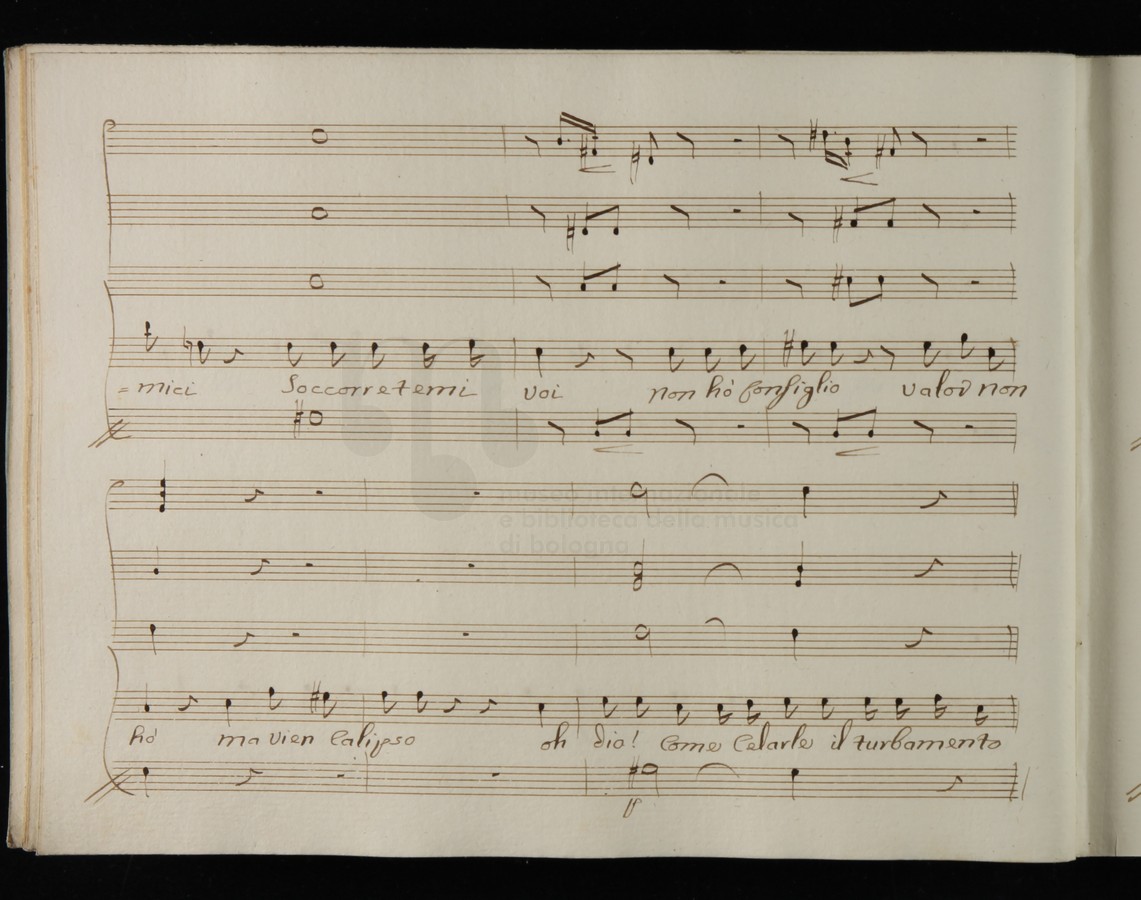 =mici Soccorretemi voi non hò Consiglio valor non
museo internazionale
e biblioteca della musica
di bologna
hò ma vien Calipso oh dio! Come Celarle il turbamento
ff